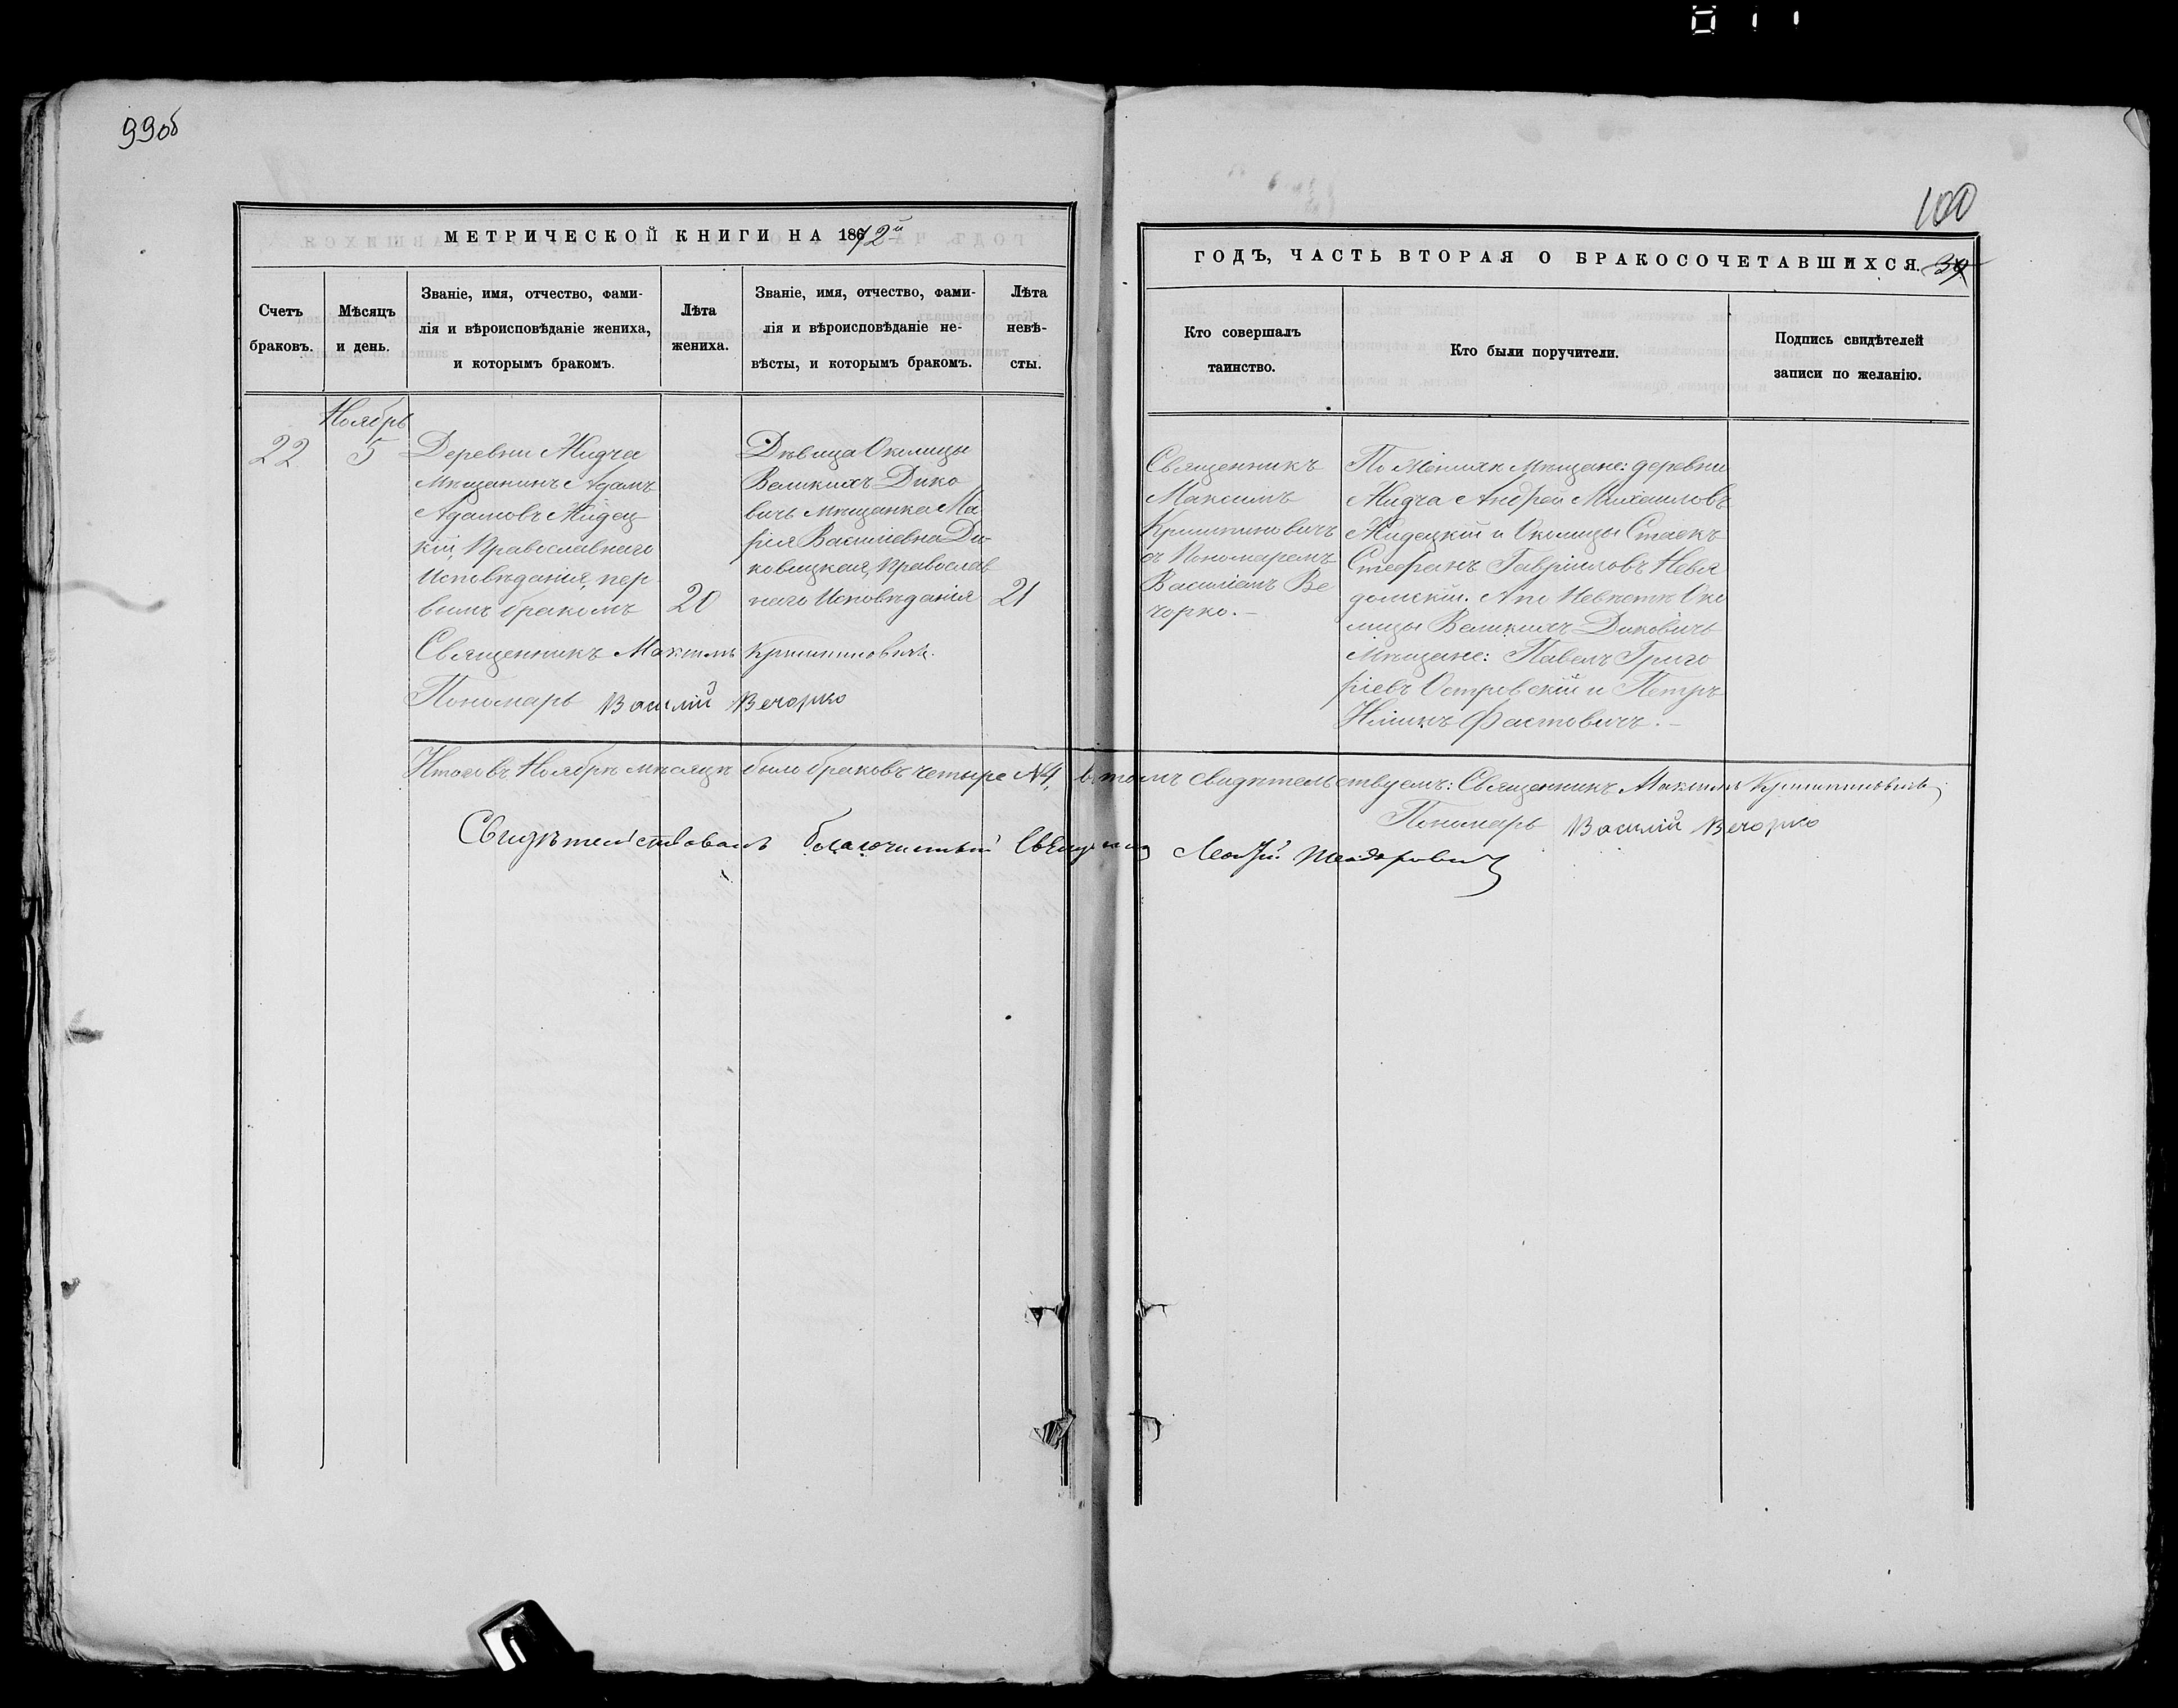 99об
100
МЕТРИЧЕСКОЙ КНИГИ НА 1862й
ГОДЪ, ЧАСТЬ ВТОРАЯ О БРАКОСОЧЕТАВШИХСЯ. 39
Счетъ
браковъ.
Мѣсяцъ
и день.
Званіе, имя, отчество, фами-
лія и вѣроисповѣданіе жениха,
и которымъ бракомъ.
Лѣта
жениха.
Званіе, имя, отчество, фами-
лія и вѣроисповѣданіе не-
вѣсты, и которымъ бракомъ.
Лѣта
невѣ-
сты.
Кто совершалъ
таинство.
Кто были поручители.
Подпись свидѣтелей
записи по желанію.
Ноябрь
22
5
Деревни Жидча
Мѣщанинъ Адамъ
Адамовъ Жидец-
кій, Православнаго
Исповѣданія, пер-
вымъ бракомъ
20
Дѣвица Околицы
Великихъ Дико
вичь мѣщанка Ма
рія Василіевна Ди-
ковицкая, Православ
наго Исповѣданія
21
Священникъ
Максимъ
съ Пономаремъ
Василіемъ Ве
чорко.—
По Женихѣ Мѣщане: деревни
Жидча Андрей Михаиловъ
Жидецкій и Околицы Стаекъ
Стефанъ Гавріиловъ Невя
домскій. А по Невѣстѣ Око
лицы Великихъ Диковичь
Мѣщане: Павелъ Григо
ріевъ Островскій и Петръ
Фастовичъ.—
Священникъ Максимъ
Пономарь Василій Вечорко
Итого въ Ноябрѣ мѣсяцѣ было браковъ четыре №4, въ томъ свидѣтельствуемъ: Священникъ Максимъ
Пономарь Василій Вечорко
Свидѣтельствовалъ благочинный Священникъ